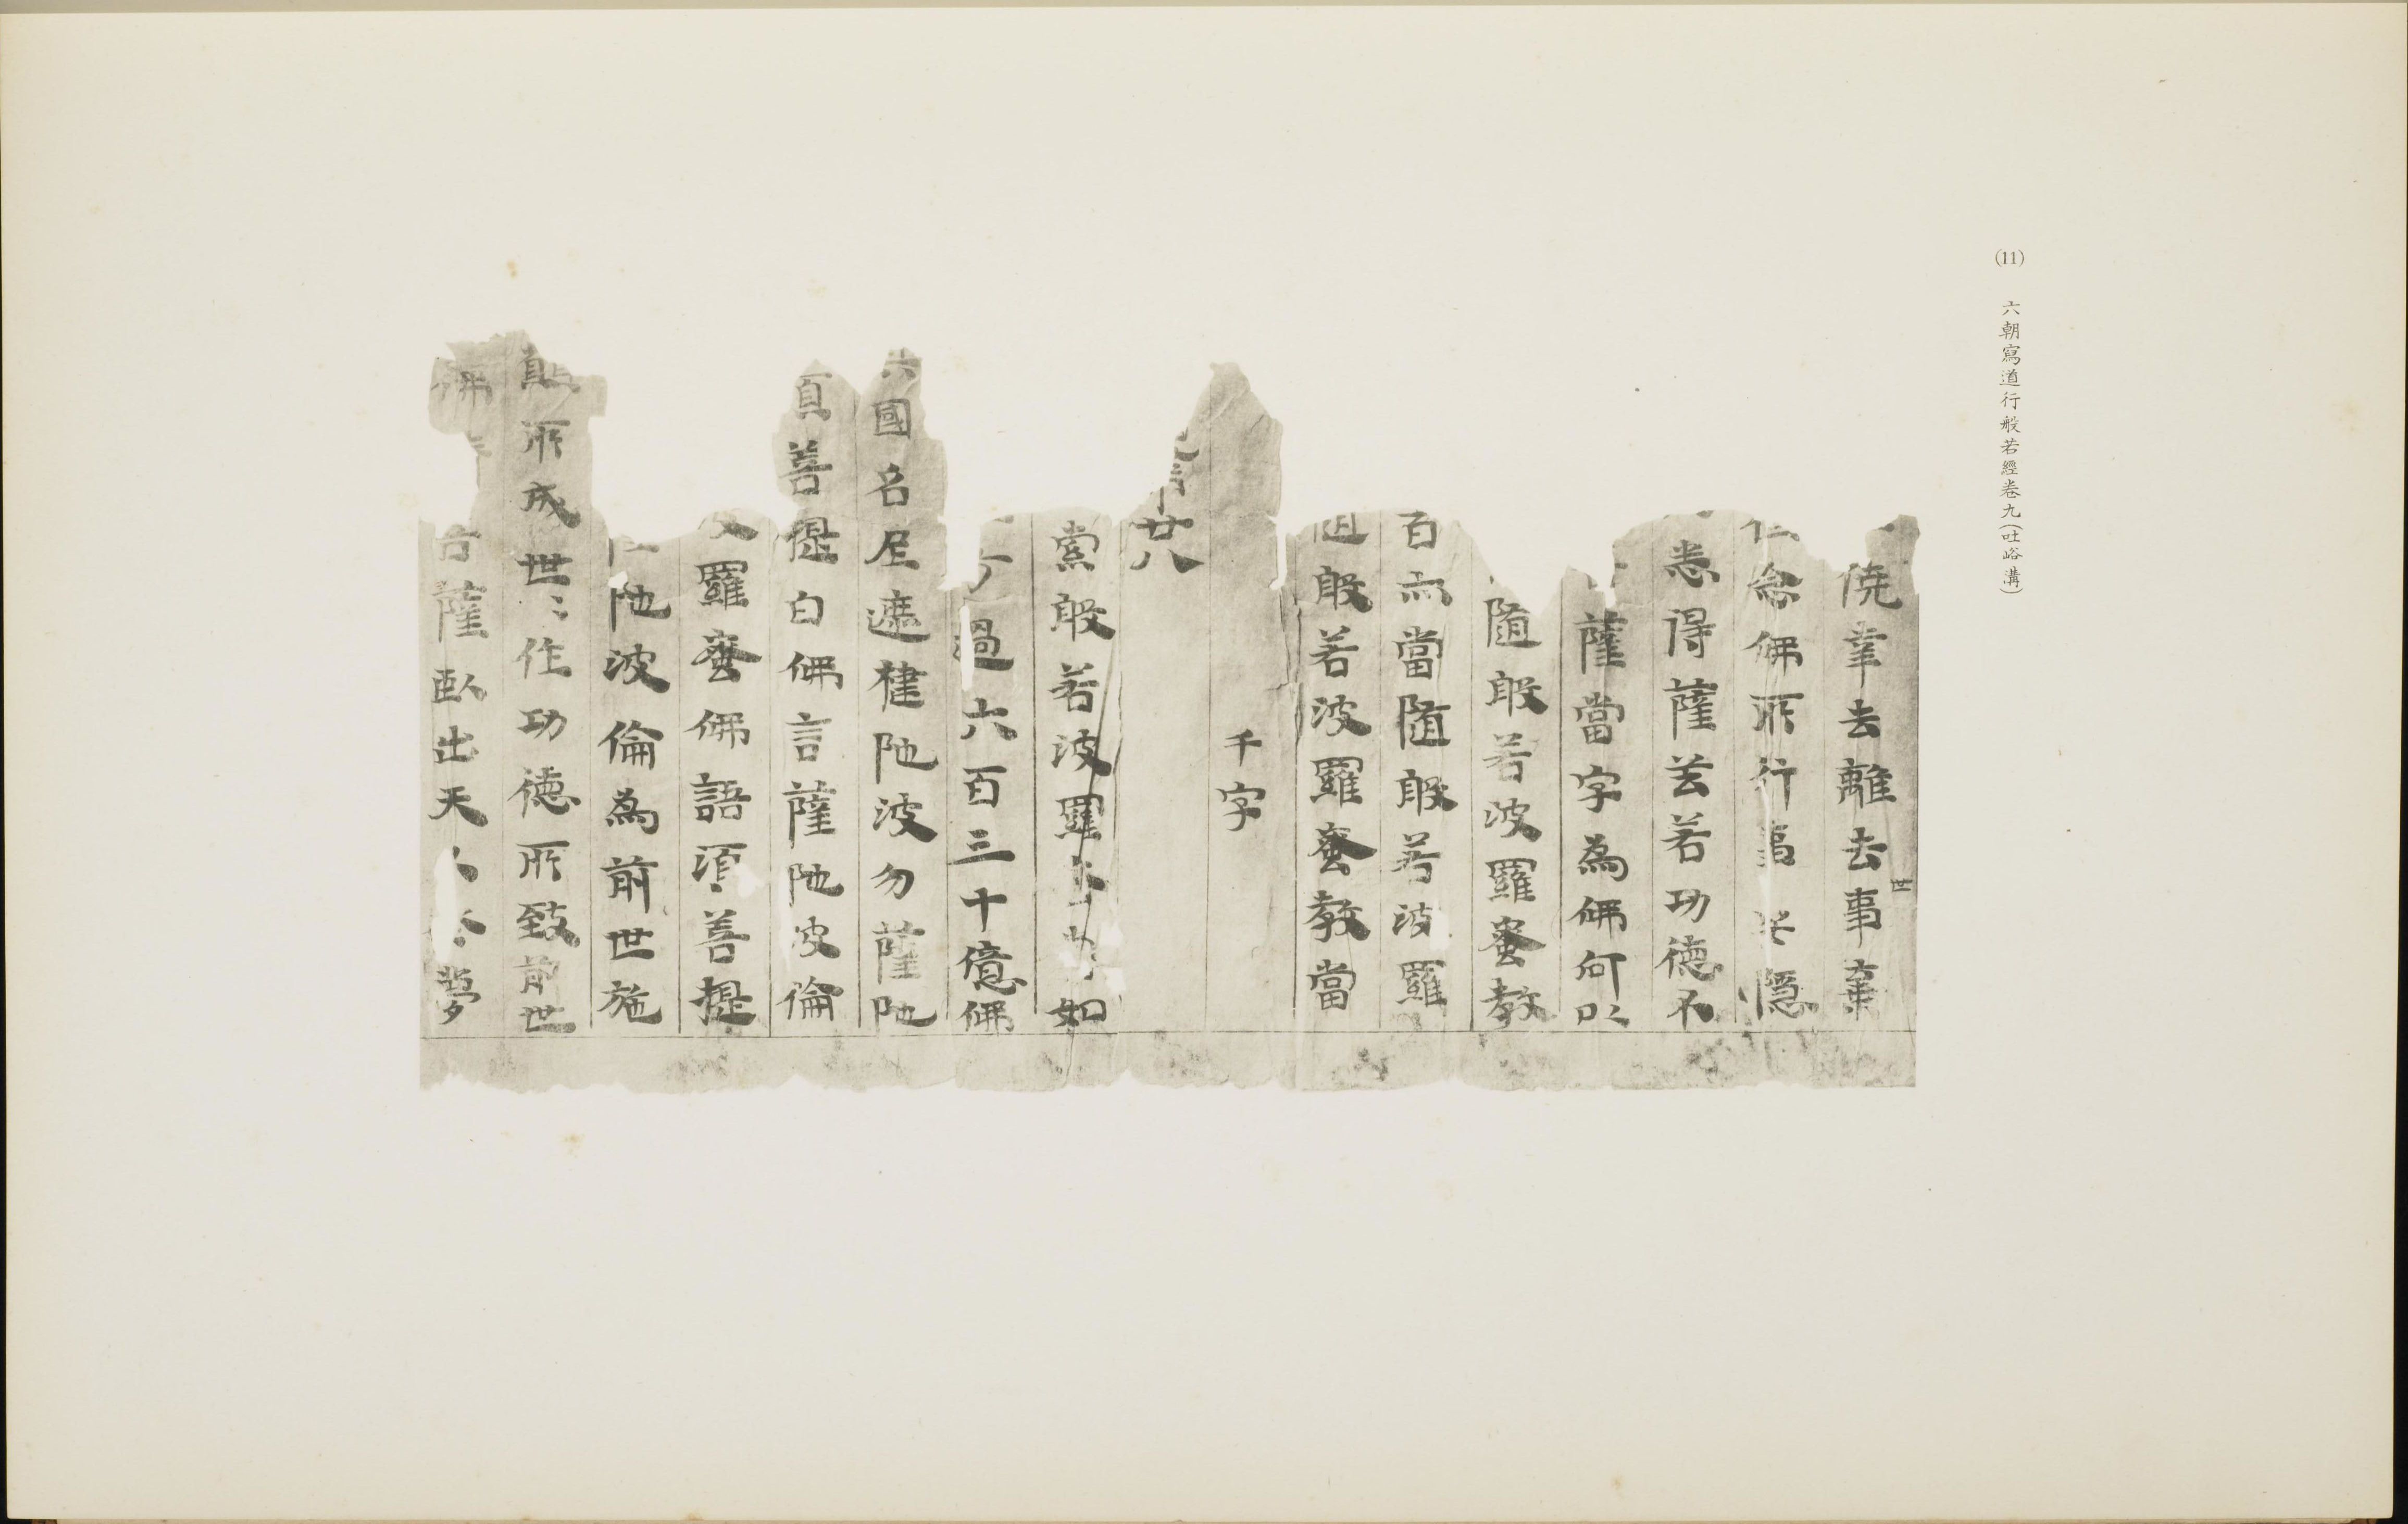 (11) 六朝寫道行般若經卷九(吐峪溝)
世
僥羍去離去事棄
念佛所行事 隱
悉得薩芸若功德不
薩當字為佛何以
隨般若波羅蜜教
百亦當隨般若波羅
般若波羅蜜教當
千字
廿八
索般若波羅 如
過六百三十億佛
國名尼遮揵陁波勿薩陁
善提白佛言薩陁波倫
羅蜜佛語須善提
陁波倫為前世施
願所成世〻作功德所致前世
佛 薩臥出天 夢